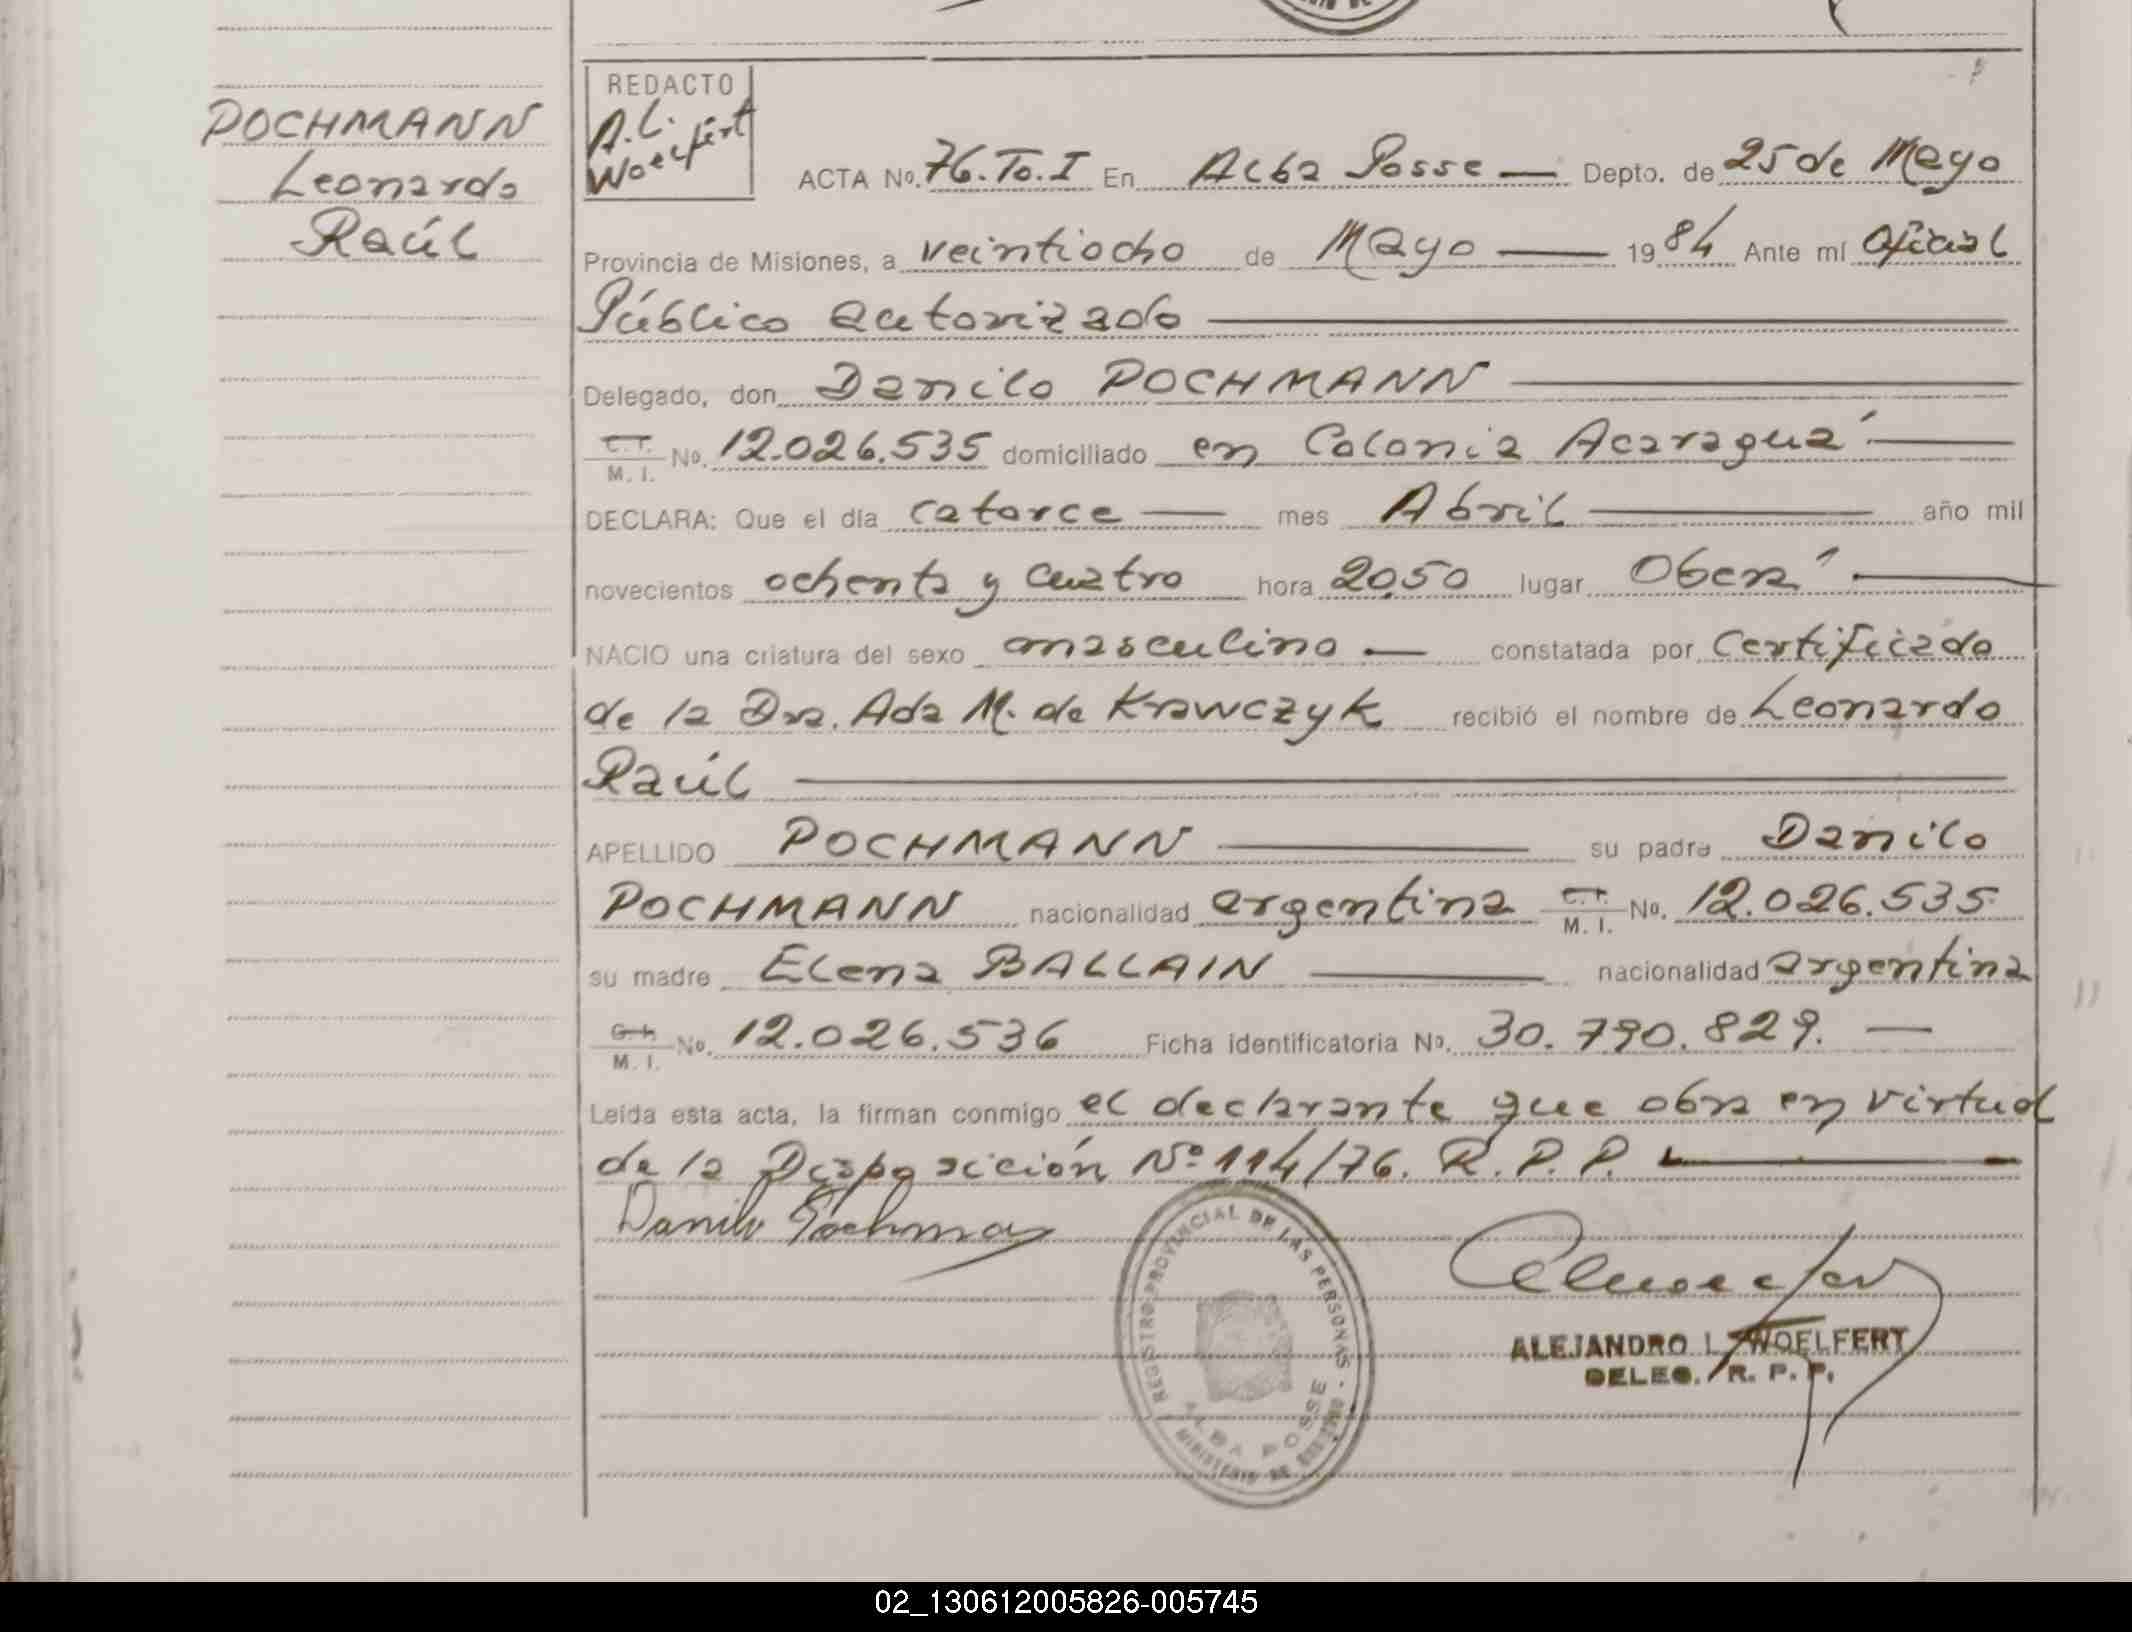 POCHMANN
Leonardo
Raúl
REDACTO
A.L.
Woelfert
ACTA No. 76.To.I En Alba Posse — Depto. de 25 de Mayo
Provincia de Misiones, a veintiocho de Mayo — 1984 Ante mí Oficial
Público autorizado
Delegado, don Danilo POCHMANN
C.I.
M. I. No. 12.026.535 domiciliado en Colonia Acaraguá
DECLARA: Que el día catorce — mes Abril — año mil
novecientos ochenta y cuatro hora 20,50 lugar Oberá
NACIO una criatura del sexo masculino — constatada por Certificado
de la Dra. Ada M. de Krawczyk recibió el nombre de Leonardo
Raúl
APELLIDO POCHMANN — su padre Danilo
POCHMANN nacionalidad argentina C.I. M. I. No. 12.026.535
su madre Elena BALLAIN — nacionalidad argentina
C.I.
M. I. No. 12.026.536 Ficha identificatoria No. 30.790.829. —
Leída esta acta, la firman conmigo el declarante que obra en virtud
de la Disposición Nº 114/76. R.P.P.
Danilo Pochman
REGISTRO PROVINCIAL DE LAS PERSONAS
ALBA POSSE
MINISTERIO DE GOBIERNO
ALEJANDRO L. WOELFERT
DELEG. R. P. P.
02_130612005826-005745